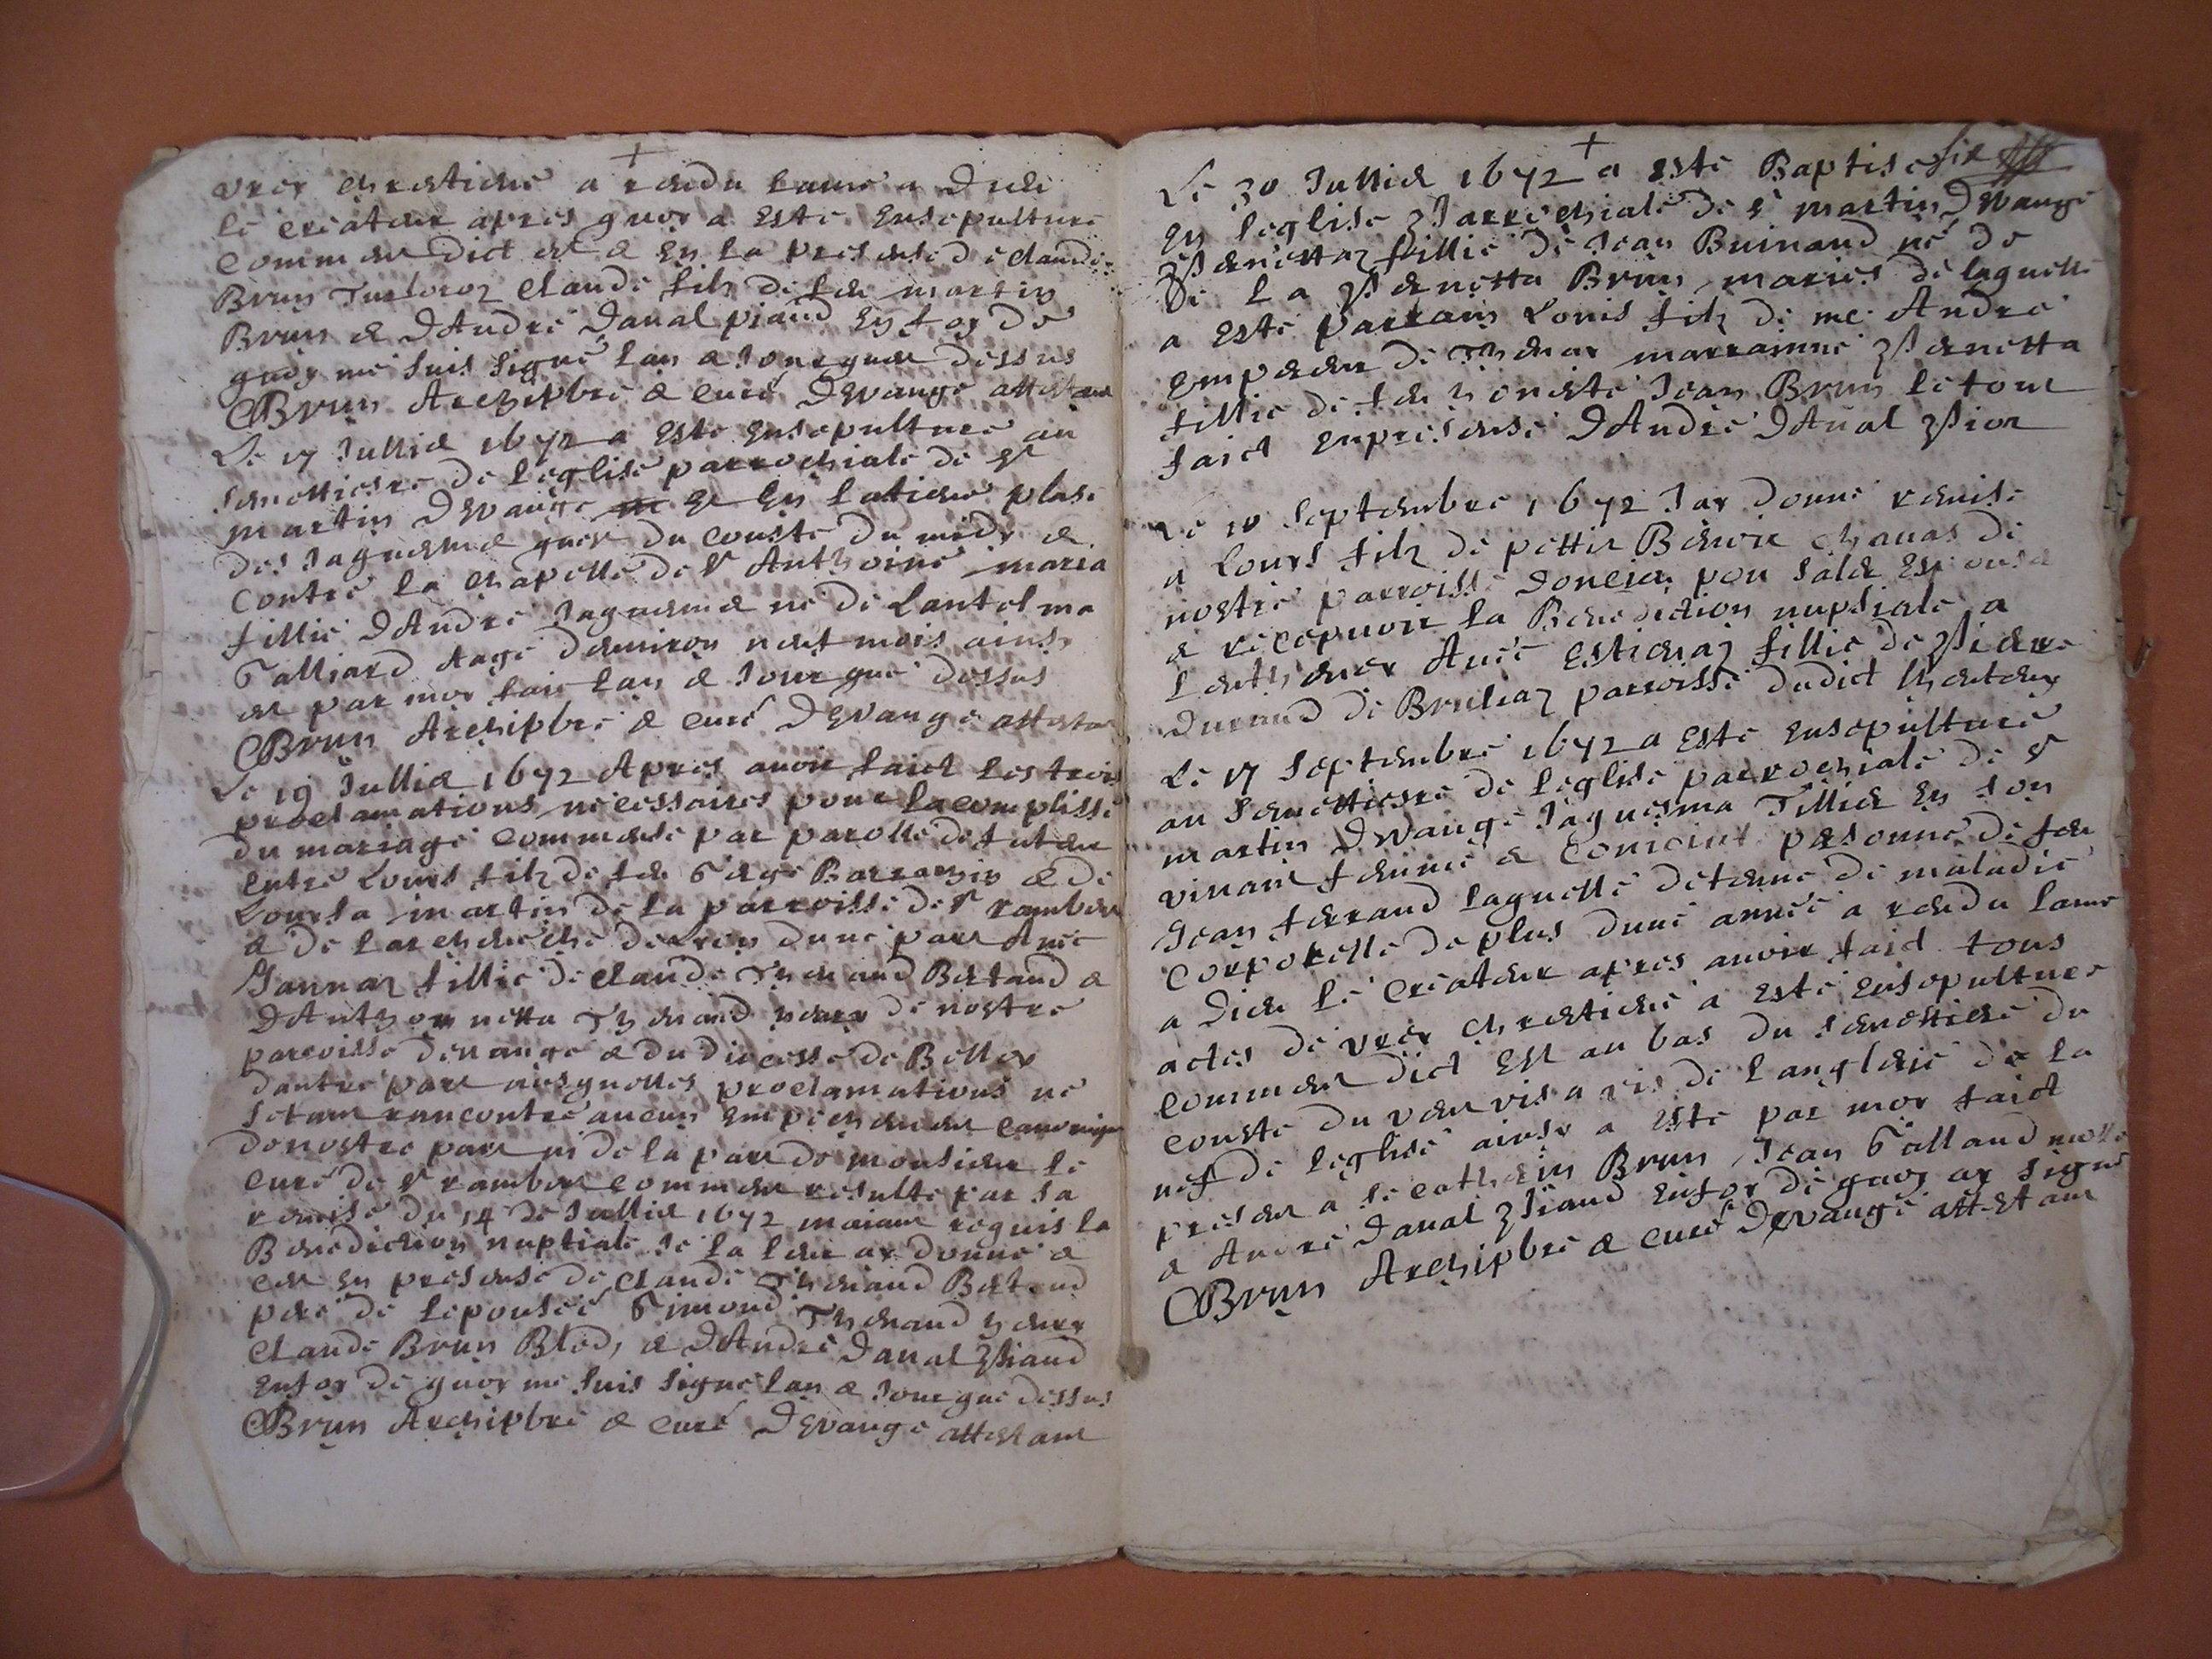 vrey chrestiene a rendu lame a Dieu
le createur apres quoy a este ensepulture
comment dict est & en la presense de claude
Brun claude filz de feu martin
Brun & DAndre Daual piaud en foy de
quoy me suis signé lan & Jour que dessus
Brun Archipbre & curé DEvange attestant
Le 17 Jullié 1672 a este ensepulture au
semettiesre de leglise parrochiale de st
martin DEvange en latiene plase
des Jaquemé quer du couste du midy &
contre la chapelle de st Anthoine maria
fillie DAndre Jaquemé né de Lantelma
Galliard Aagé denviron neuf mois ainsy
est par moy fait lan & Jour que dessus
Brun Archipbre & curé DEvange attestant
Le 19 Jullié 1672 Apres auoir faict les trois
proclamations necessaires pour lacomplisse
du mariage commense par parolle de futeur
entre Louys filz de feu George Barramin & de
Loursa martin de la parroisse de st rambert
& de larcheueche de Lyon dune part Auec
Jannaz fillie de claude Thenand Bertand &
DAuthonnetta Thenand de nostre
parroisse devange & du diocesse de Belley
dautre part ausquelles proclamations ne
setant rancontre aucun empechement canonique
de nostre part ni de la part de monsieur le
curé de st rambert comment resulte par sa
remise du 14 de Jullié 1672 maiant requis la
Benediction nuptiale Je la leur ay donne &
ce en presense de claude Thenand Bertand
pere de lepousee Simond Thenand
claude Brun Blod, & DAndre Daual piaud
enfoy de quoy me suis signe lan & Jour que dessus
Brun Archipbre & curé DEvange attestant
Le 30 Jullié 1672 a este Baptisé
en leglise parrochiale de st martin DEvange
pernettaz fillie de Jean Buinand né de
de La pernetta Brun mariés de laquelle
a este parrain Louis filz de me Andre
empereur de marrainne pernetta
fillie de feu honeste Jean Brun le tout
faict enpresense DAndre DAual piou
Le 10 septembre 1672 Jay donne remise
a Louys filz de pettit Benoit chauas de
nostre parroisse Doncin pou salé espousé
& recepuoir la Benediction nupsiale a
Lentheney Auec estienaz fillie de pierre
Durand de Brulliaz parroisse dudict Lhentenay
Le 17 septembre 1672 a este ensepulture
au semettiesre de leglise parrochiale de st
martin DEvange Jaquesma Tillié en son
vinant femme & coniointe persone de feu
Jean ferrand laquelle detenue de maladie
corporelle de plus dune annee a rendu lame
a Dieu le createur apres auoir faict tous
actes de vrey chrestiene a este ensepulture
comment dict est au bas du semettiere du
couste du vent vis a vis de langlerie de la
nef de leglise ainsy a este par moy faict
present a se catherin Brun Jean Galland
& Andre Daual piaud enfoy de quoy ay signe
Brun Archipbre & curé DEvange attestant